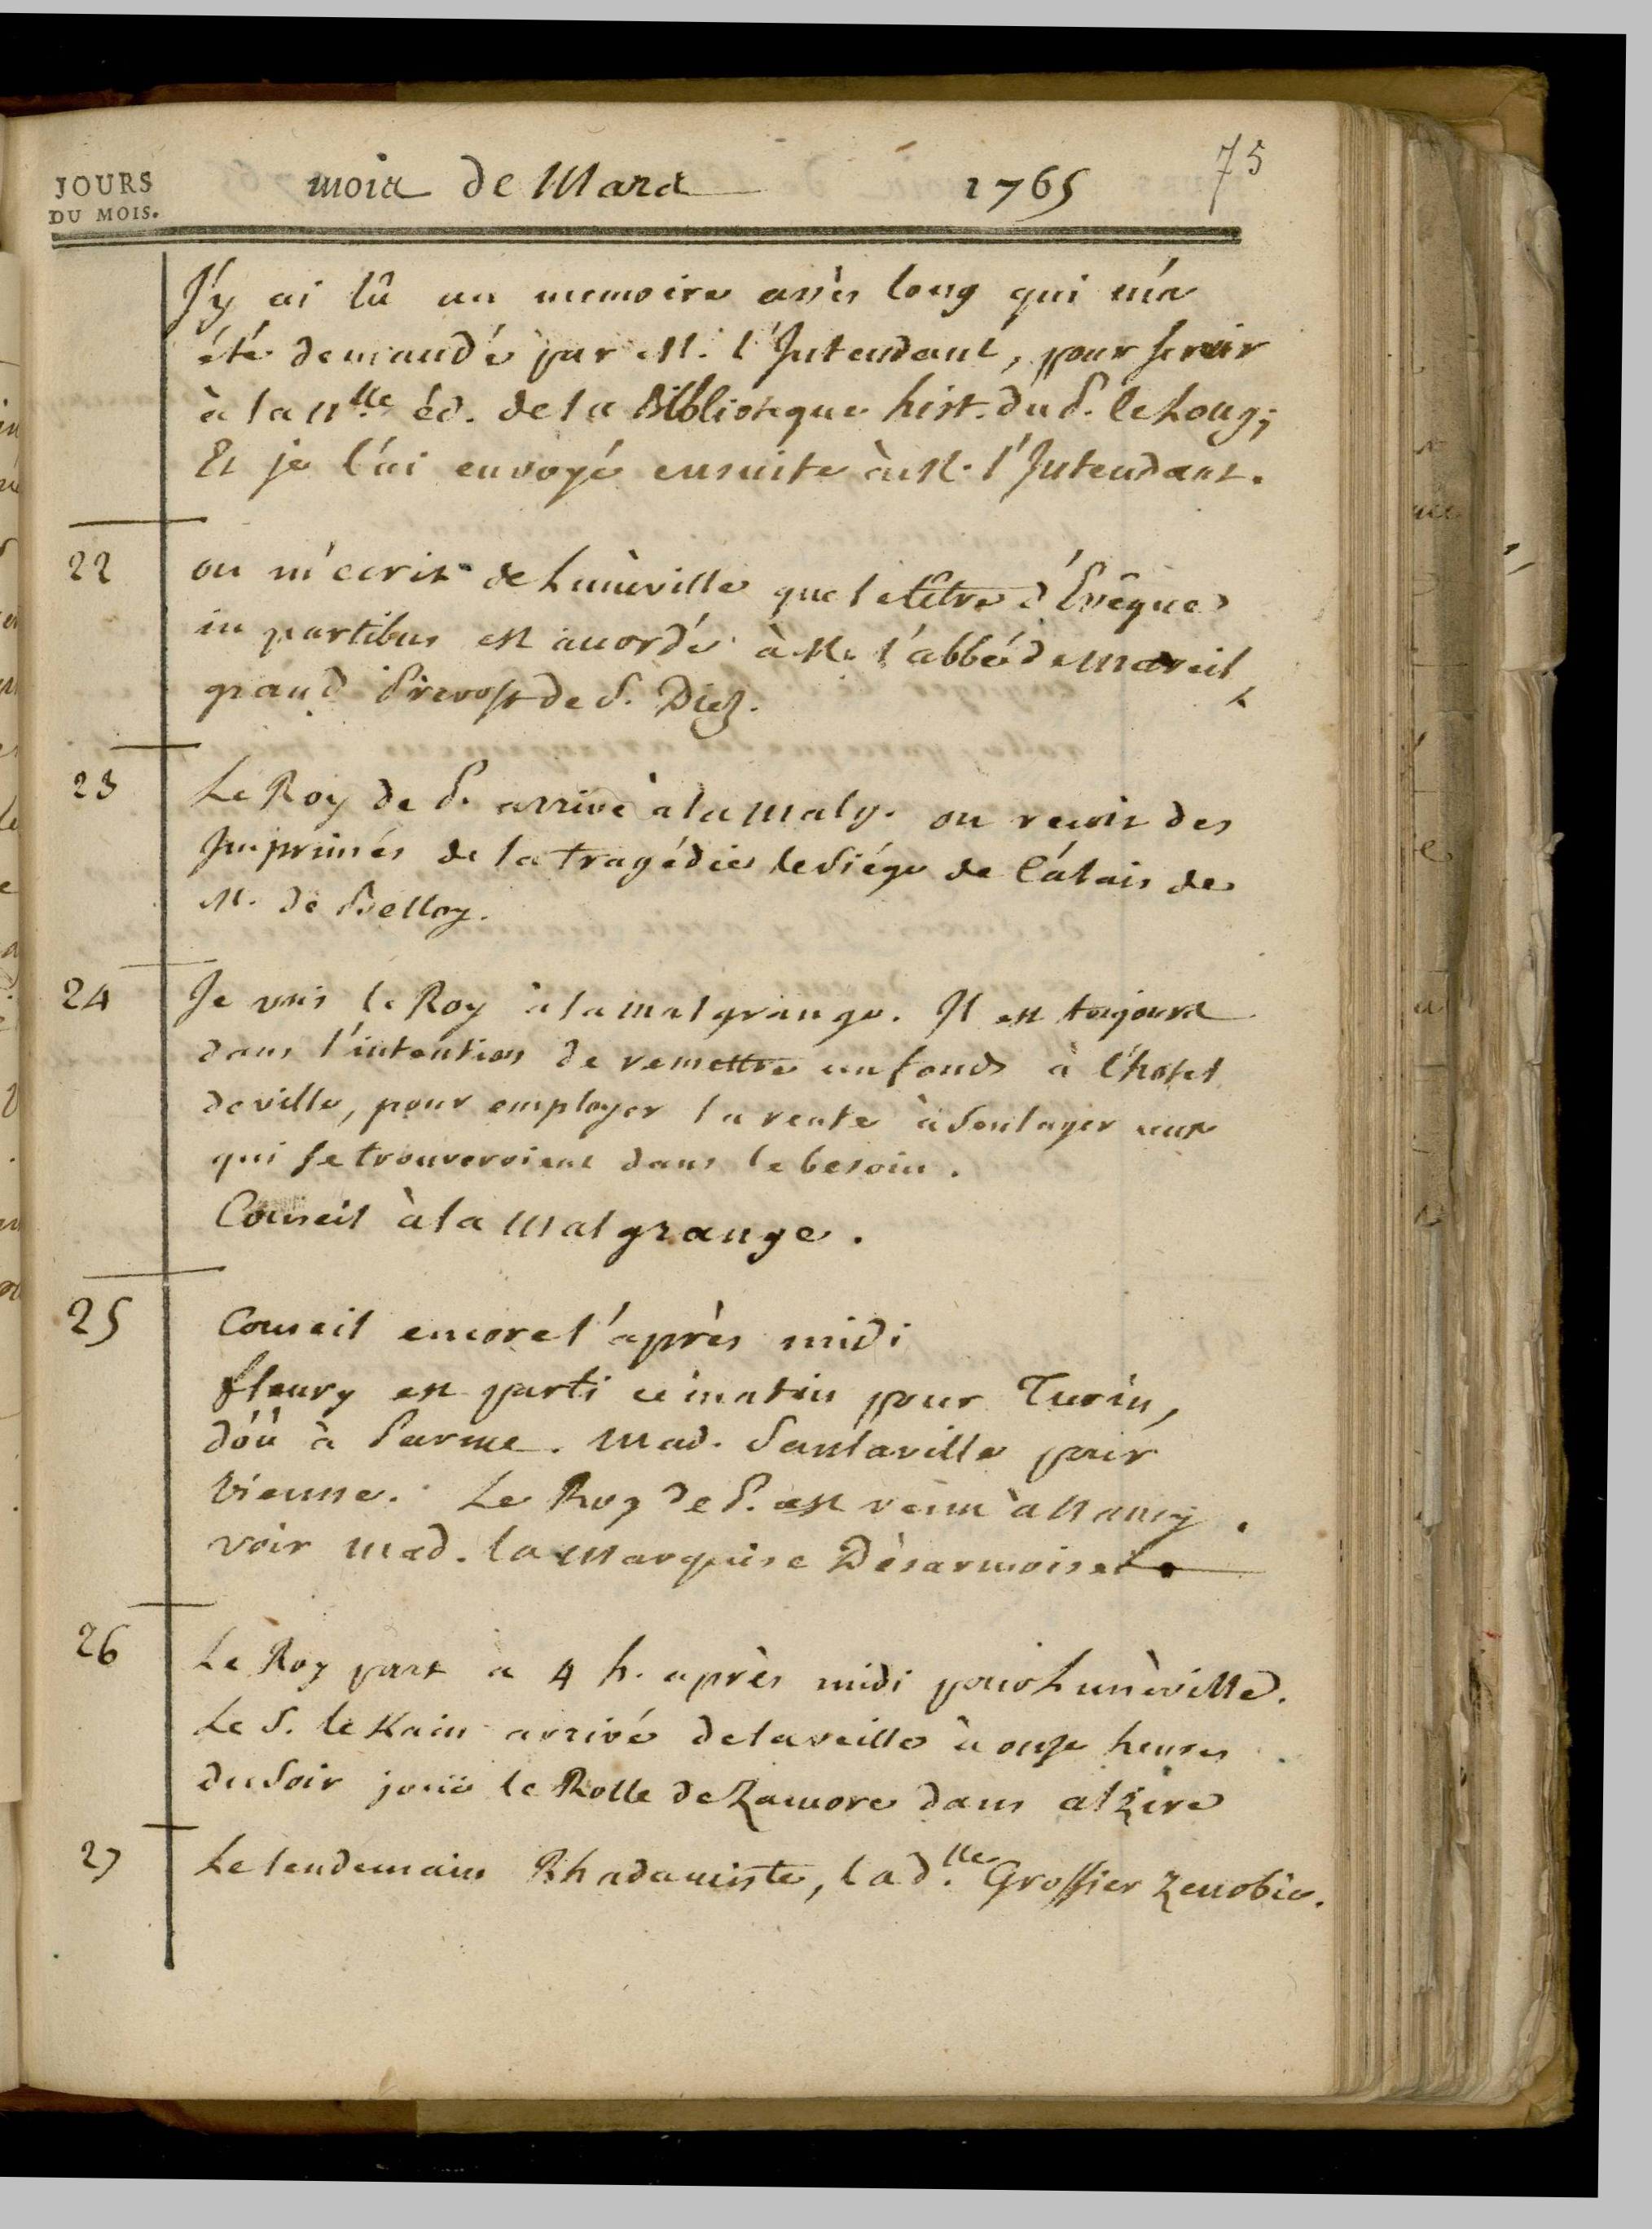 JOURS
DU MOIS.
mois de Mars 1765
75
J'y ai lû un memoire assès long qui m'a
été demandé par M. l'Intendant, pour servir
à la nlle éd. de la Biblioteque hist. du P. le Long;
Et je l'ai envoyé ensuite à M. l'Intendant.
22 on m'ecrit de Lunéville que le titre d'Evêque
in partibus est accordé à M. l'abbé de Mareil,
grand Prevost de S. Diez.
23 Le Roy de P. arrive à la Malg. on reçoit des
Imprimés de la tragédie le Siége de Calais de
M. de Belloy.
24 Je vois le Roy à la malgrange. Il est toujours
dans l'intention de remettre un fonds à l'hotel
de ville, pour employer la rente à Soulager ceux
qui se trouveroient dans le besoin.
Conseil à la Malgrange.
25 Conseil encore l'après midi
fleury est parti ce matin pour Turin,
d'où à Parme. Mad. Santaville pour
Vienne. Le Roy de P. est venu à Nancy
voir mad. la Marquise Désarmoises.
26 Le Roy part à 4 h. après midi pour Lunéville.
Le S. le Kain arrivé de la veille à onze heures
du Soir joüe le Rolle de Zamore dans alzire
27 Le lendemain Rhadamiste, la d.lle Grossier Zenobie.